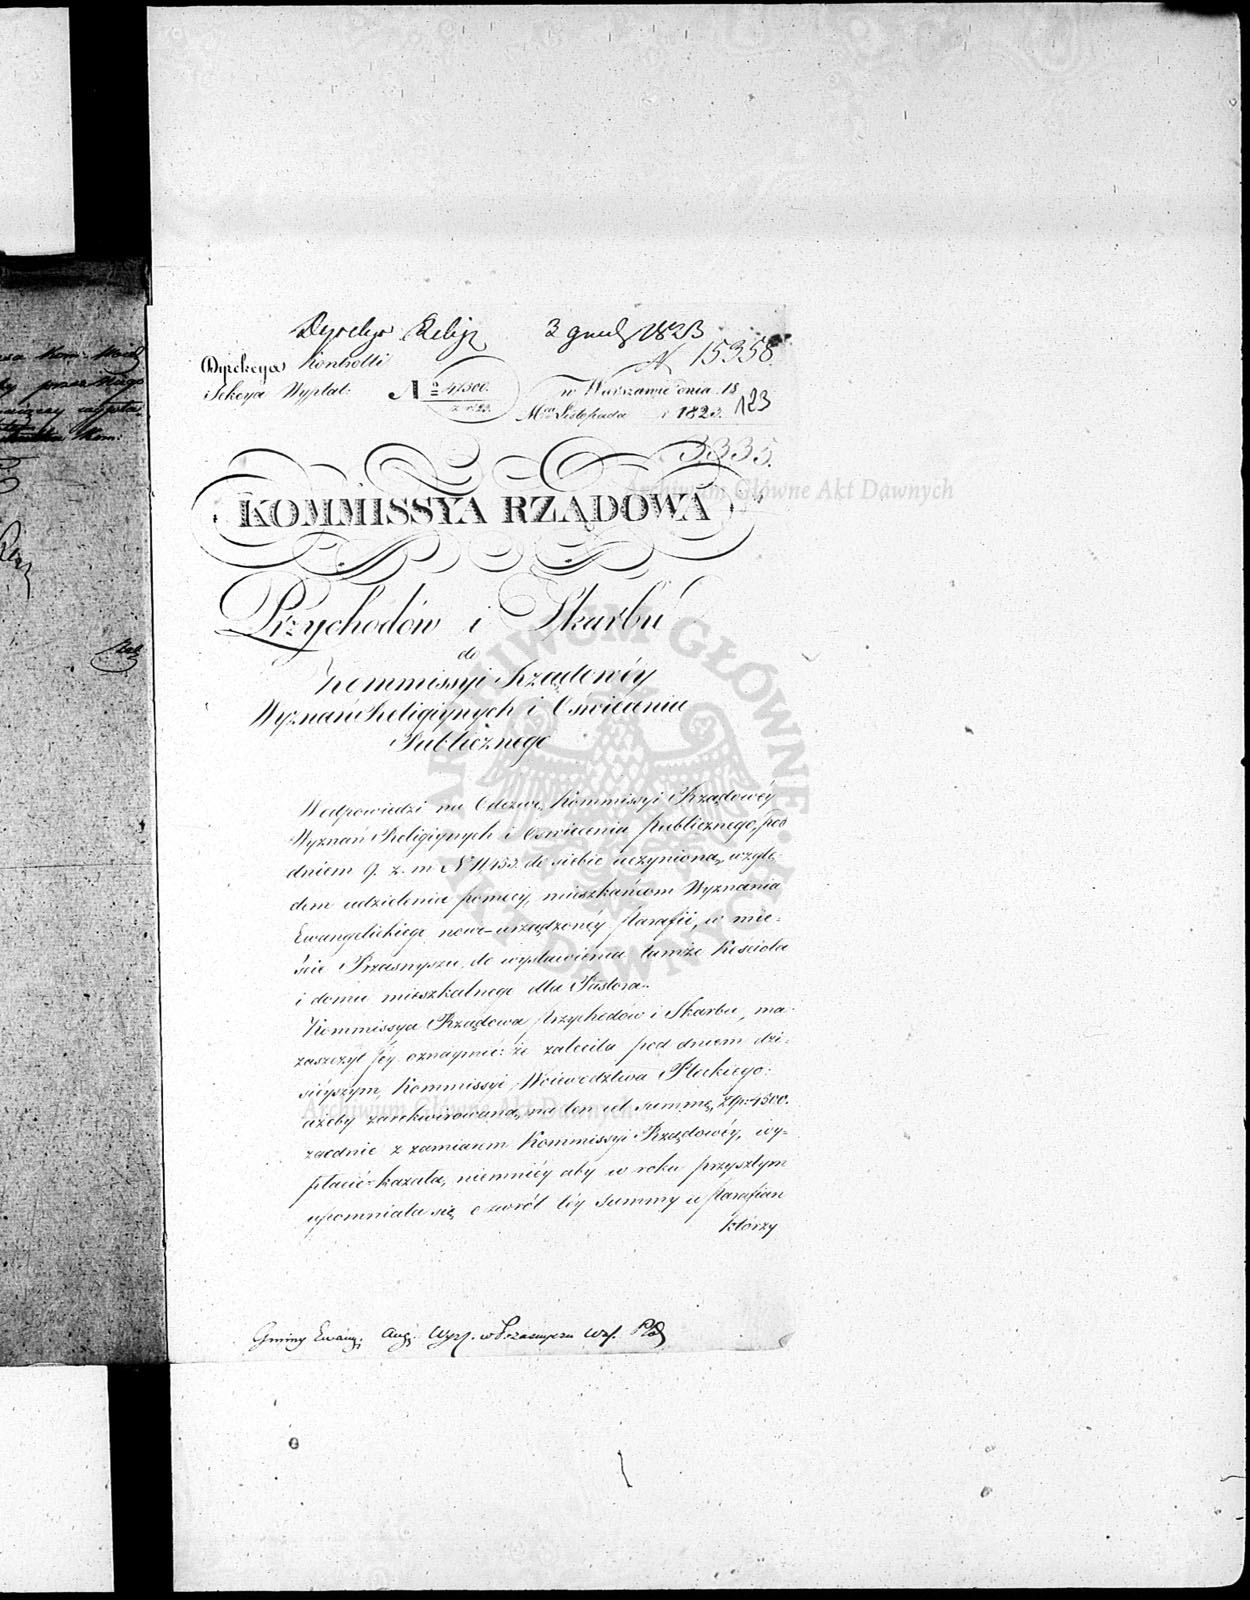 Dyrekcya Relig. 3 grud. 1823
N 15358.
Dyrekcya Kontrolli
i Sekcya Wypłat. No 47300. w Warszawie dnia 18
z r. 23. Mca Listopada r. 1823. 123
3335.
KOMMISSYA RZĄDOWA
Przychodów i Skarbu
do
Kommissyi Rządowéy
Wyznań Religiynych i Oświecenia
Publicznego
W odpowiedzi na Odezwę Kommissyi Rządowéy
Wyznań Religiynych i Oświecenia Publicznego, pod
dniem 9. z. m. N 11453. do siebie uczynioną, wzglę-
dem udzielenia pomocy, mieszkańcom Wyznania
Ewangelickiego nowo-urządzonéy Parafii, w mie-
ście Przasnyszu, do wystawienia tamże Kościoła
i domu mieszkalnego dla Pastora.
Kommissya Rządowa Przychodów i Skarbu, ma
zaszczyt Jéy oznaymić: że zaleciła pod dniem dzi-
sieyszym, Kommissyi Woiewództwa Płockiego:
ażeby zarekwirowaną, na ten cel summę, Złp: 4500.
zgodnie z zamiarem Kommissyi Rządowéy, wy-
płacić kazała, niemniéy aby w roku przyszłym
upomniała się o zwrót téy summy u Parafian
którzy
Gminy Ewang. Aug. Wyzn. w Przasnyszu Wf. Pło
Archiwum Główne Akt Dawnych
ARCHIWUM GŁÓWNE AKT DAWNYCH
Archiwum Główne Akt Dawnych